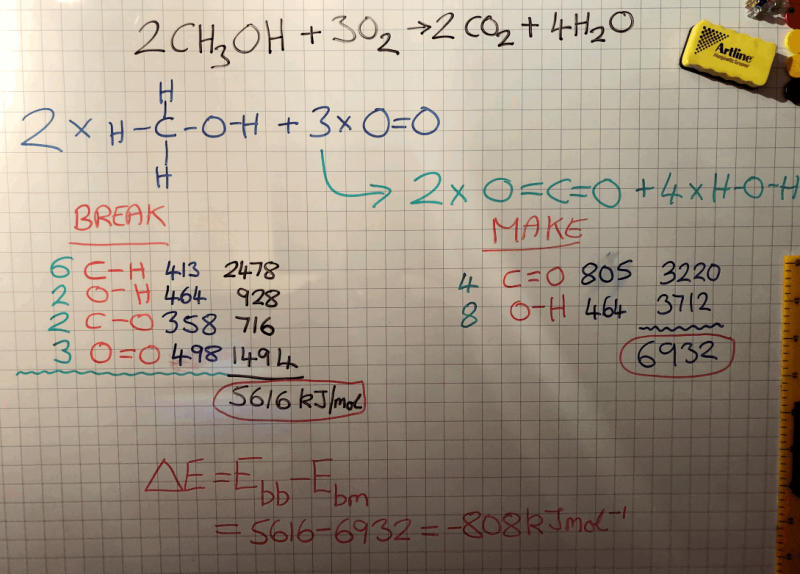 2CH₃OH + 3O₂ → 2CO₂ + 4H₂O
Artline
H
2 × H-C-O-H + 3× O=O
H
2× O=C=O + 4×H-O-H
BREAK
6 C-H 413 2478
2 O-H 464 928
2 C-O 358 716
3 O=O 498 1494
5616 kJ/mol
MAKE
4 C=O 805 3220
8 O-H 464 3712
6932
ΔE = Ebb - Ebm
= 5616-6932 = -808kJmol⁻¹